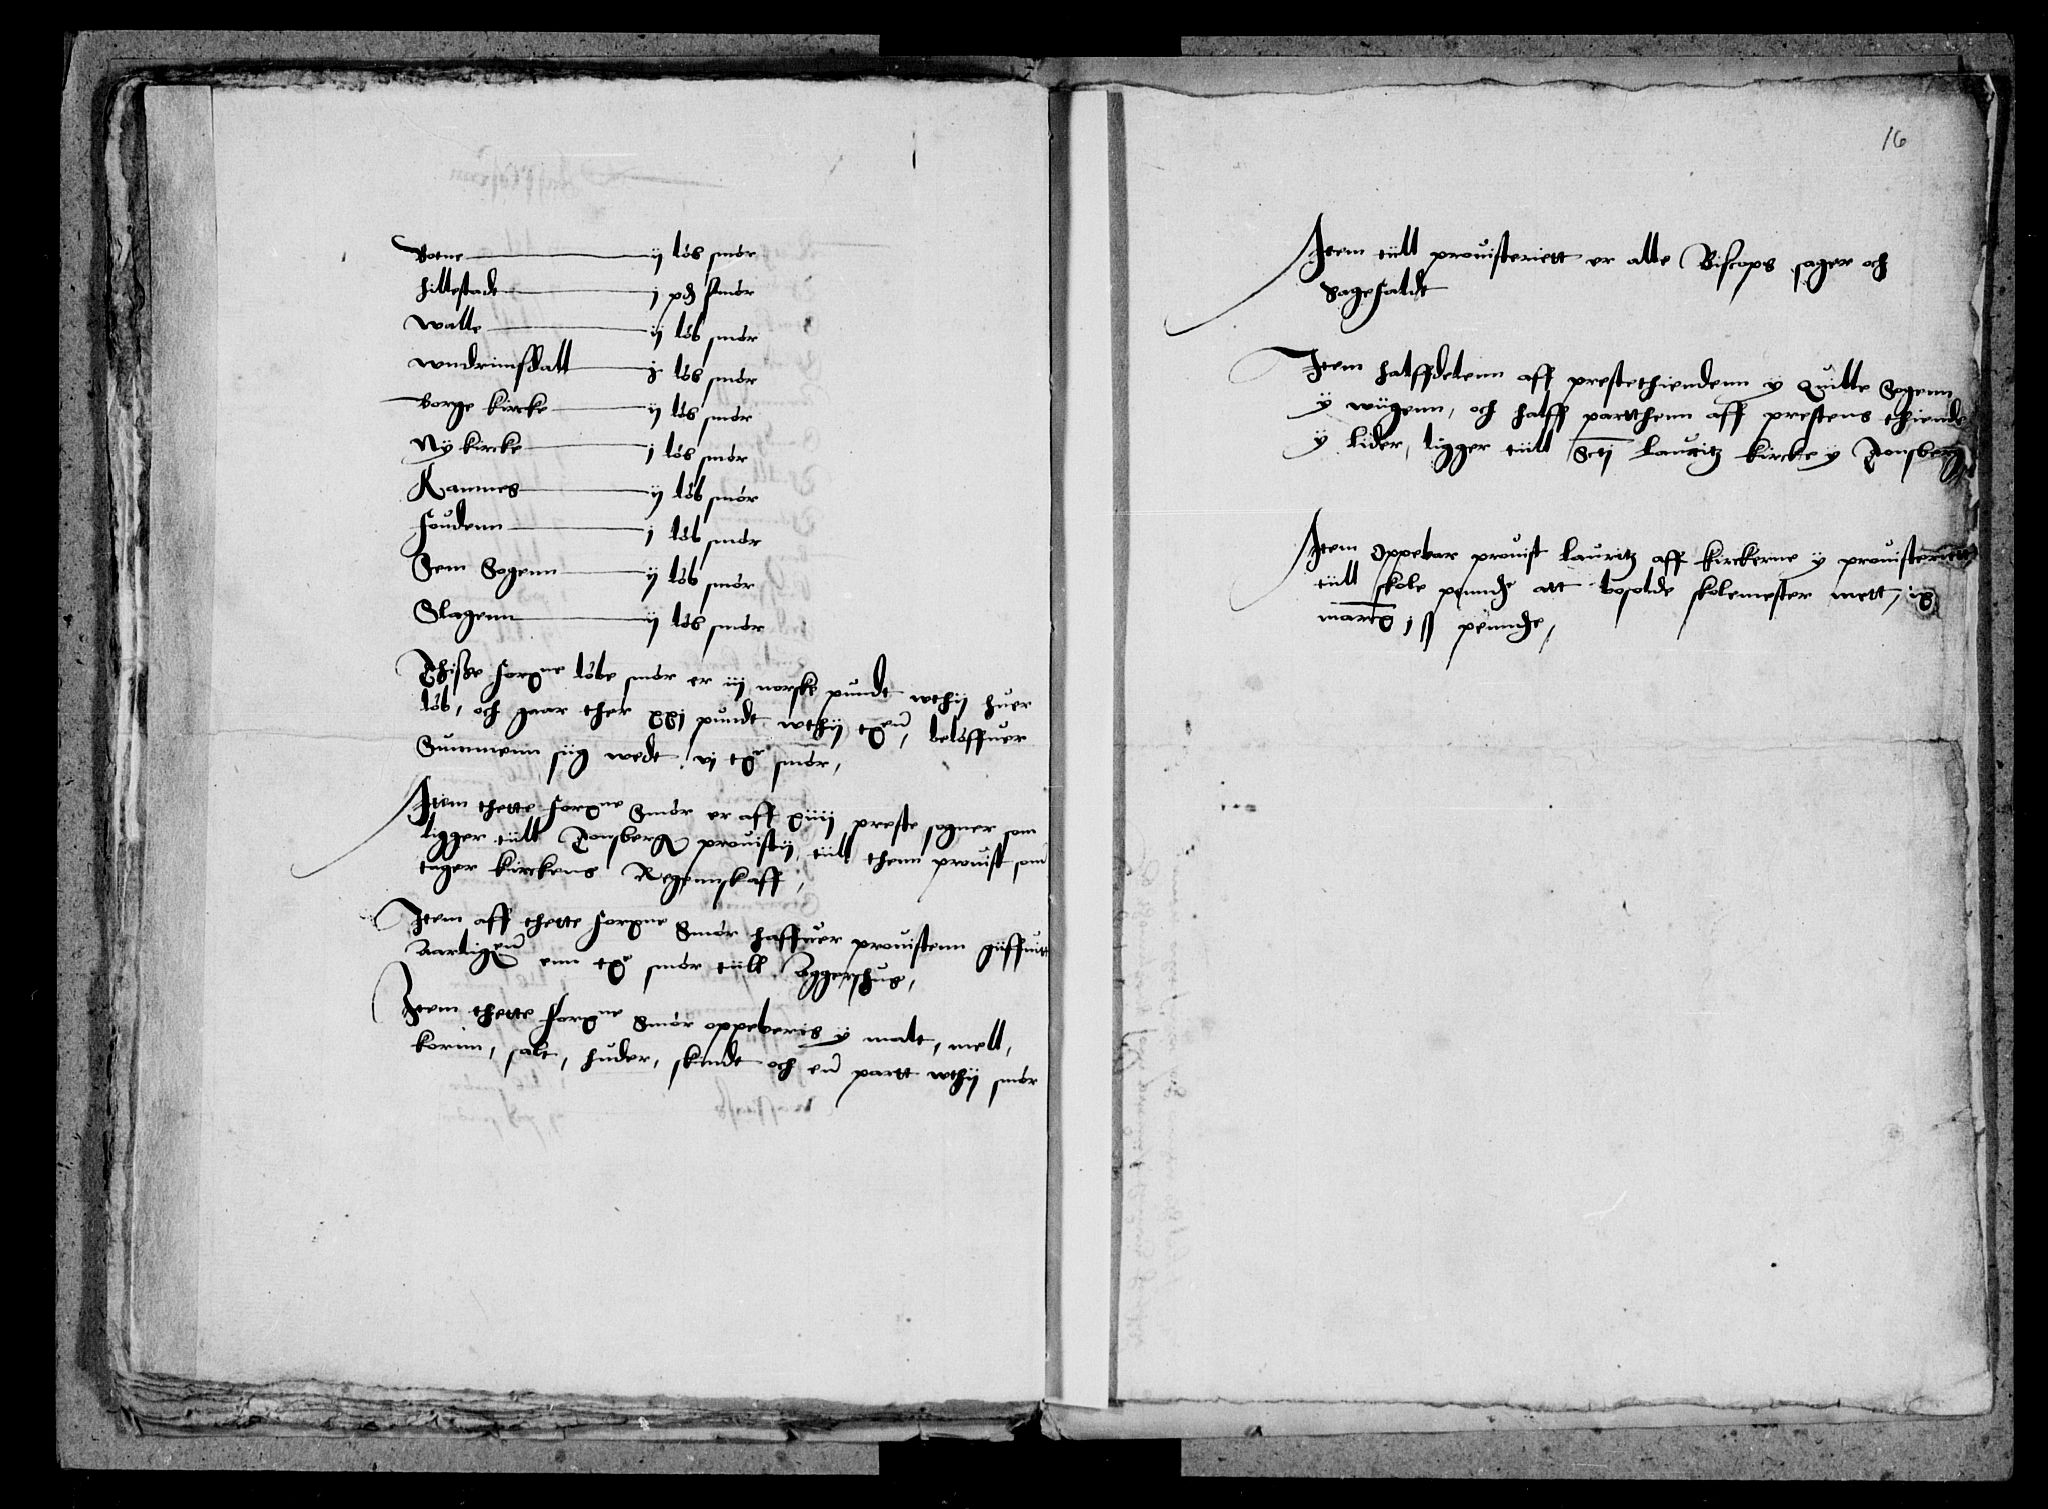 Botne ij löb smör
hillestadt j pd smör
walle ij löb smör
wndrimssdall j löb smör
borge kircke ij löb smör
Ny kircke j löb smör
Ramnes ij löb smör
foudenn j löb smör
Sem Sogenn ij löb smör
Slagenn ij löb smör
Thisße forne löbe smör er iij norske pundt wthij huer
löb, och gaar ther xxj pundt wthij tdneñ, belöffuer
Summenn siig wedt vj tdnr smör,
Item thette forne Smör er aff xiiij preste sogner som
ligger tiill Tonsberg prouistij, tiill thenn prouist som
tager kirckens Regennskaff,
Item aff thette forne Smör haffuer prouistenn giiffuitt
aarligeñ enn tdnr smör tiill Aggershus,
Item thette forne Smör oppeberis y malt, mell,
kornn, salt, huder, skindt och eñ partt wthij smör
16
Item tiill prouisteriett er alle Biscops sager och
Sagefaldt
Item halffdelenn aff prestethiendenn y Quille Sogenn
y wiigenn, och halff partthenn aff prestens thiende
y lider, ligger tiill Scti lauritz kircke y Tonsberg
Item Oppebar prouist lauritz aff kirckerne y prouisteriett
tiill skole pennge att besolde skolemester mett, ix
marc j ß pennge,